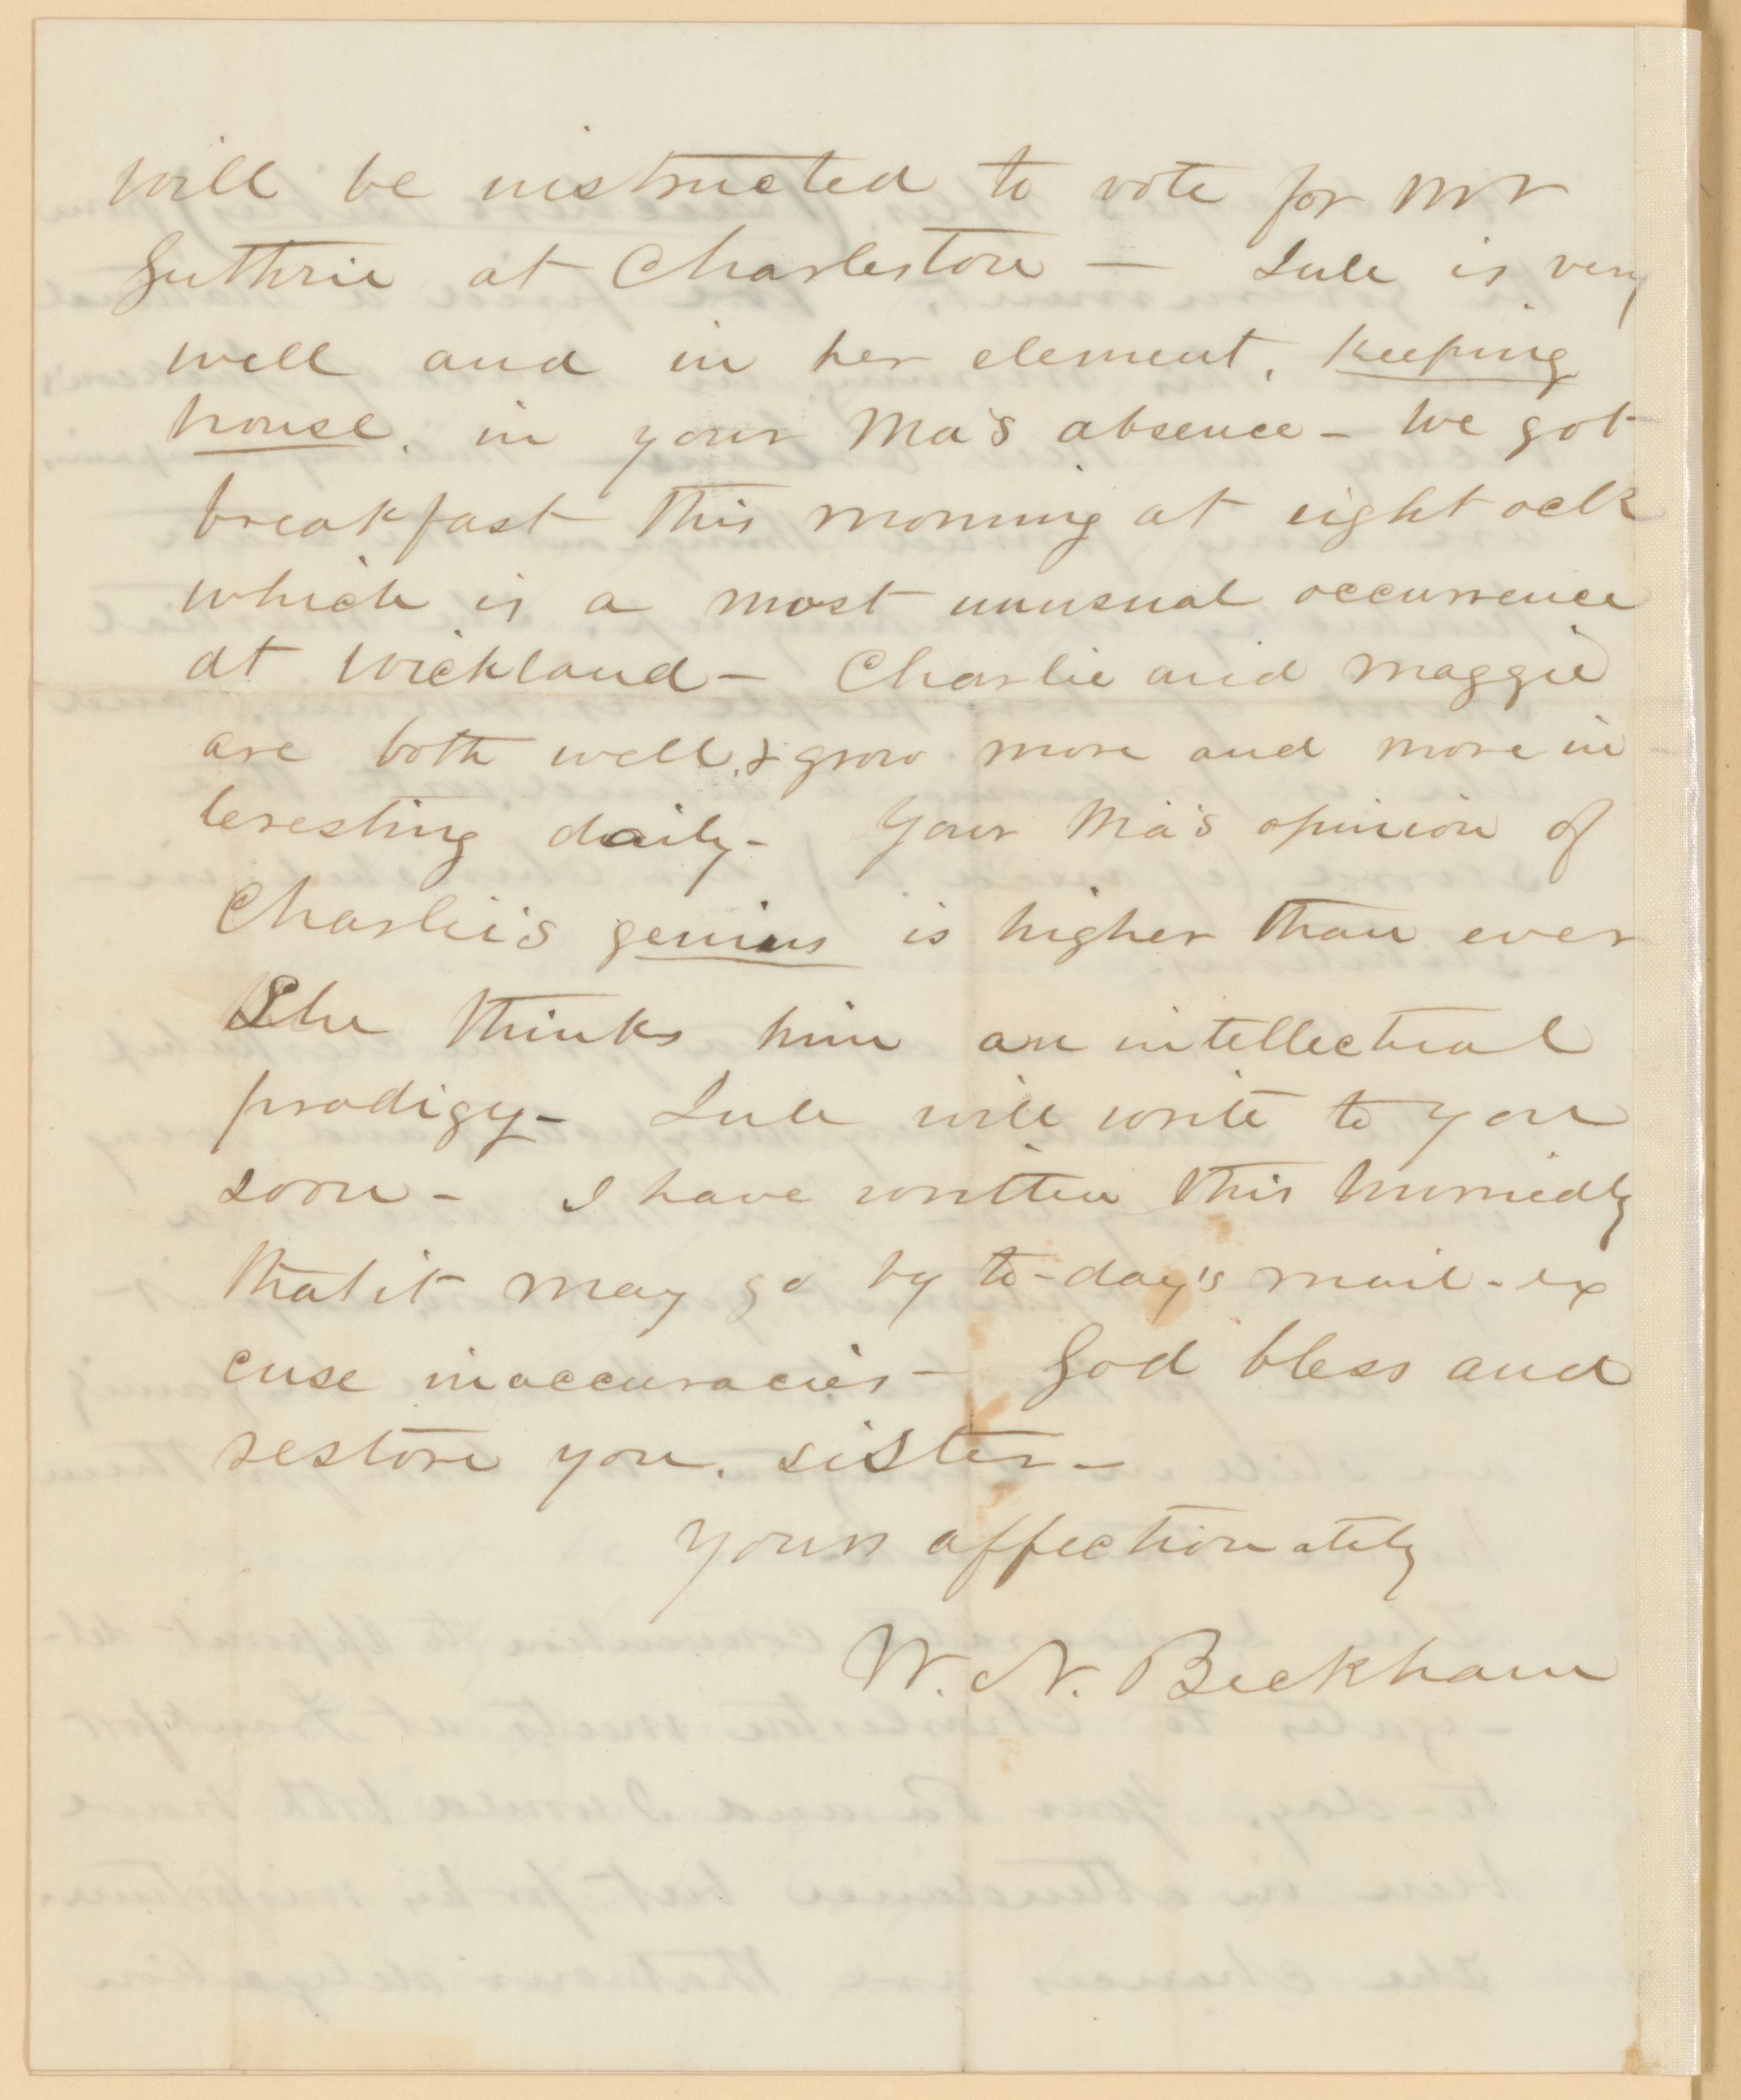 will be instructed to vote for Mr
Guthrie at Charleston — Lule is very
well and in her element, keeping
house, in your Ma's absence – We got
breakfast this morning at eight oclk
which is a most unusual occurrence
at Wickland – Charlie and Maggie
are both well, & grow more and more in
teresting daily – Your Ma's opinion of
Charlie's genius is higher than ever
She thinks him an intellectual
prodigy – Lule will write to you
soon – I have written this hurriedly
that it may go by to-day's mail – ex
cuse inaccuracies – God bless and
restore you, sister –
Yours affectionately
W. N. Beckham